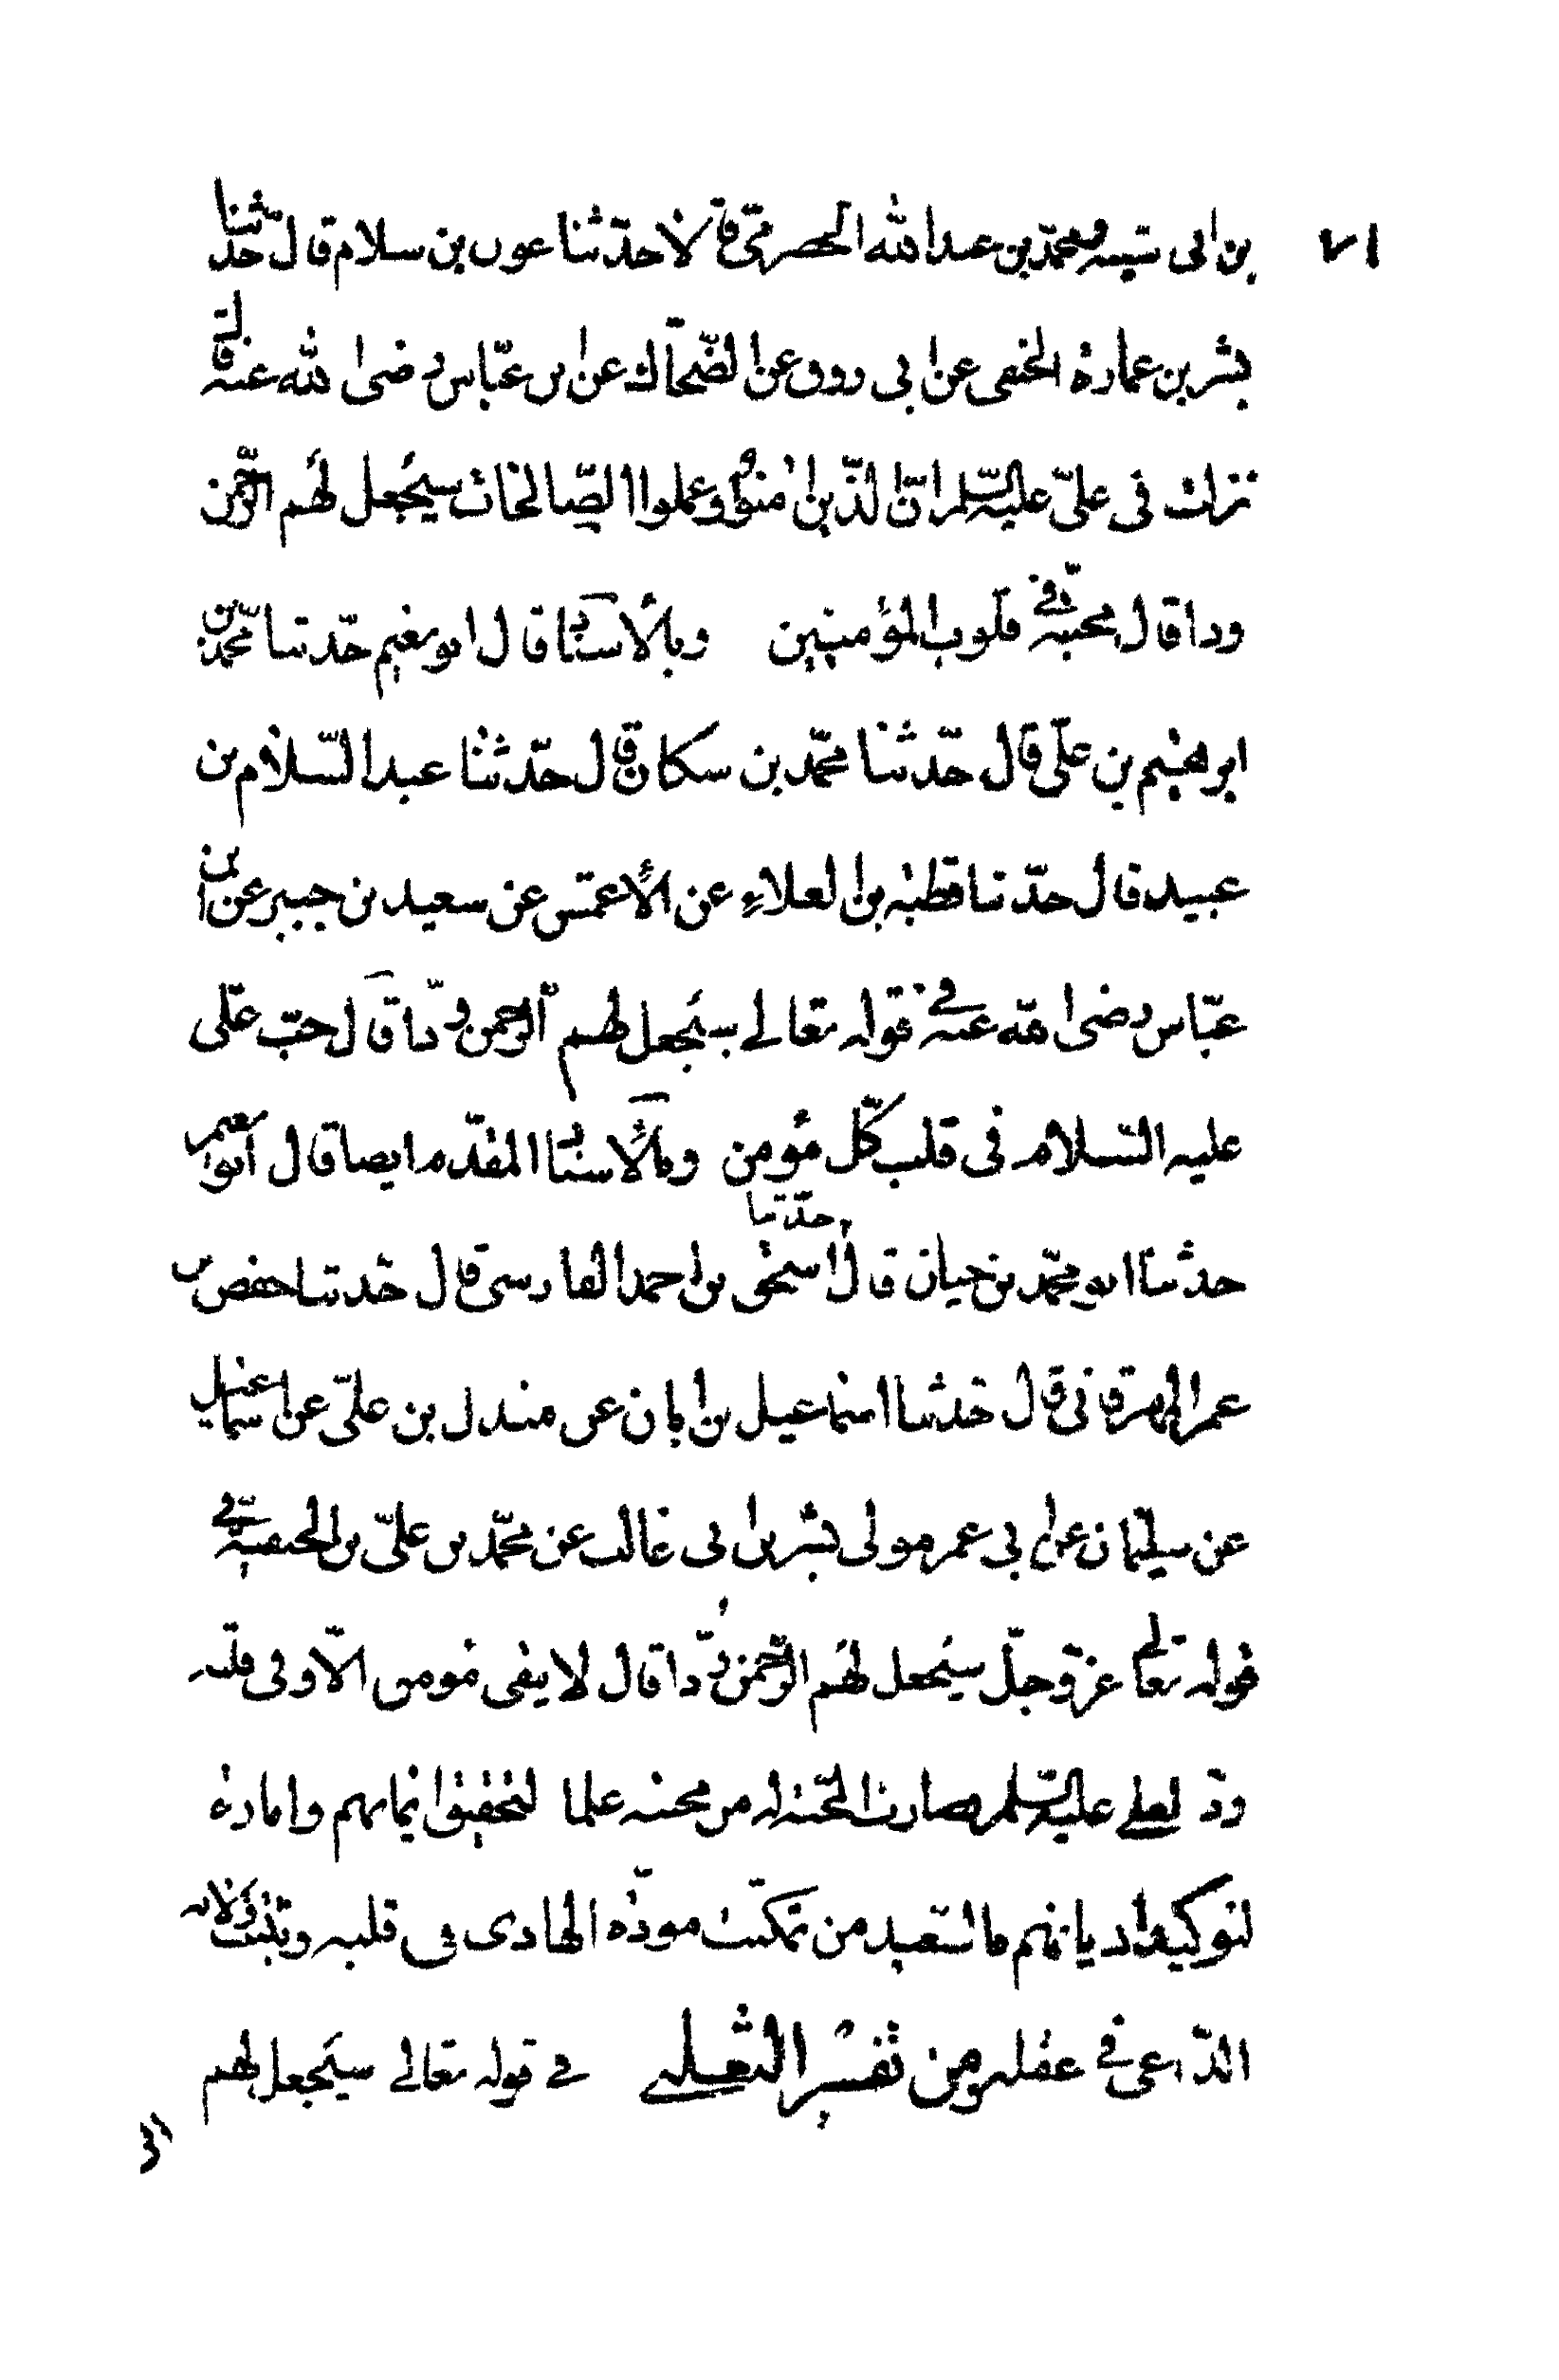 بن ابى شيبه ومحمّد بن عبد الله الحضرمىّ قالا حدّثنا عون بن سلام قال حدّثنا
بشر بن عمارة الخثعمى عن ابى روق عن الضّحّاك عن ابن عبّاس رضى الله عنه قال
نزلت فى علىّ عليه السّلم انّ الّذين امنوا وعملوا الصّالحات سيجعل لهم الرّحمن
ودا قال محبّة فى قلوب المؤمنين وبالأسناد قال ابو نعيم حدّثنا محمّد بن
ابرهيم بن علىّ قال حدّثنا محمّد بن سكان قال حدّثنا عبد السّلام بن
عبيد قال حدّثنا قطبة بن العلاء عن الأعمش عن سعيد بن جبير عن ابن
عبّاس رضى الله عنه فى قوله تعالى سيجعل لهم الرّحمن ودّا قال حبّ علىّ
عليه السّلام فى قلب كلّ مؤمن وبالأسناد المقدّم ايضا قال ابو نعيم
حدثنا ابو محمّد بن حيان قال حدّثنا اسحق بن احمد الفارسىّ قال حدّثنا حفص بن
عمر المهرقانى قال حدثنا اسماعيل بن ابان عن مندل بن علىّ عن اسماعيل
عن سليمان عن ابى عمر مولى بشر بن ابى غالب عن محمّد بن علىّ بن الحنفيّة فى
قوله تعالى عزّ وجلّ سيجعل لهم الرّحمن ودّا قال لا يبقى مؤمن الّا وفى قلبه
ودّ لعلى عليه السّلم فصارت المحبّة له من محنه علما لتحقيق ايمانهم وامارة
لتوكيد اديانهم فالسّعيد من تمكّنت مودّة الهادى فى قلبه وثبتت ولاية
الدّاعى فى عقله ومن تفسير الثعلبى فى قوله تعالى سيجعل لهم